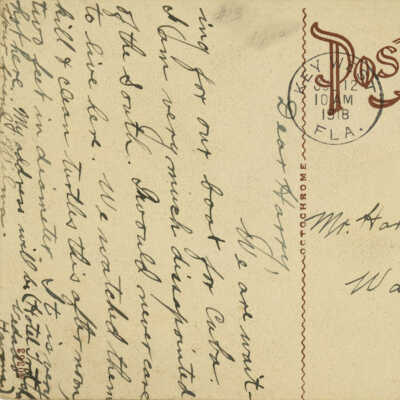 Dear Harry,
We are wait-
ing for our boat for Cuba.
I am very much disapointed
of the South. I would never care
to live here. We watched them
kill & clean turtles this afternoon
two feet in diameter. It is good
but here. My address will be (Hotel
POS
KEY WEST
12
10 AM
1918
FLA.
OCTOCHROME
Mr. Har
Wa
#13